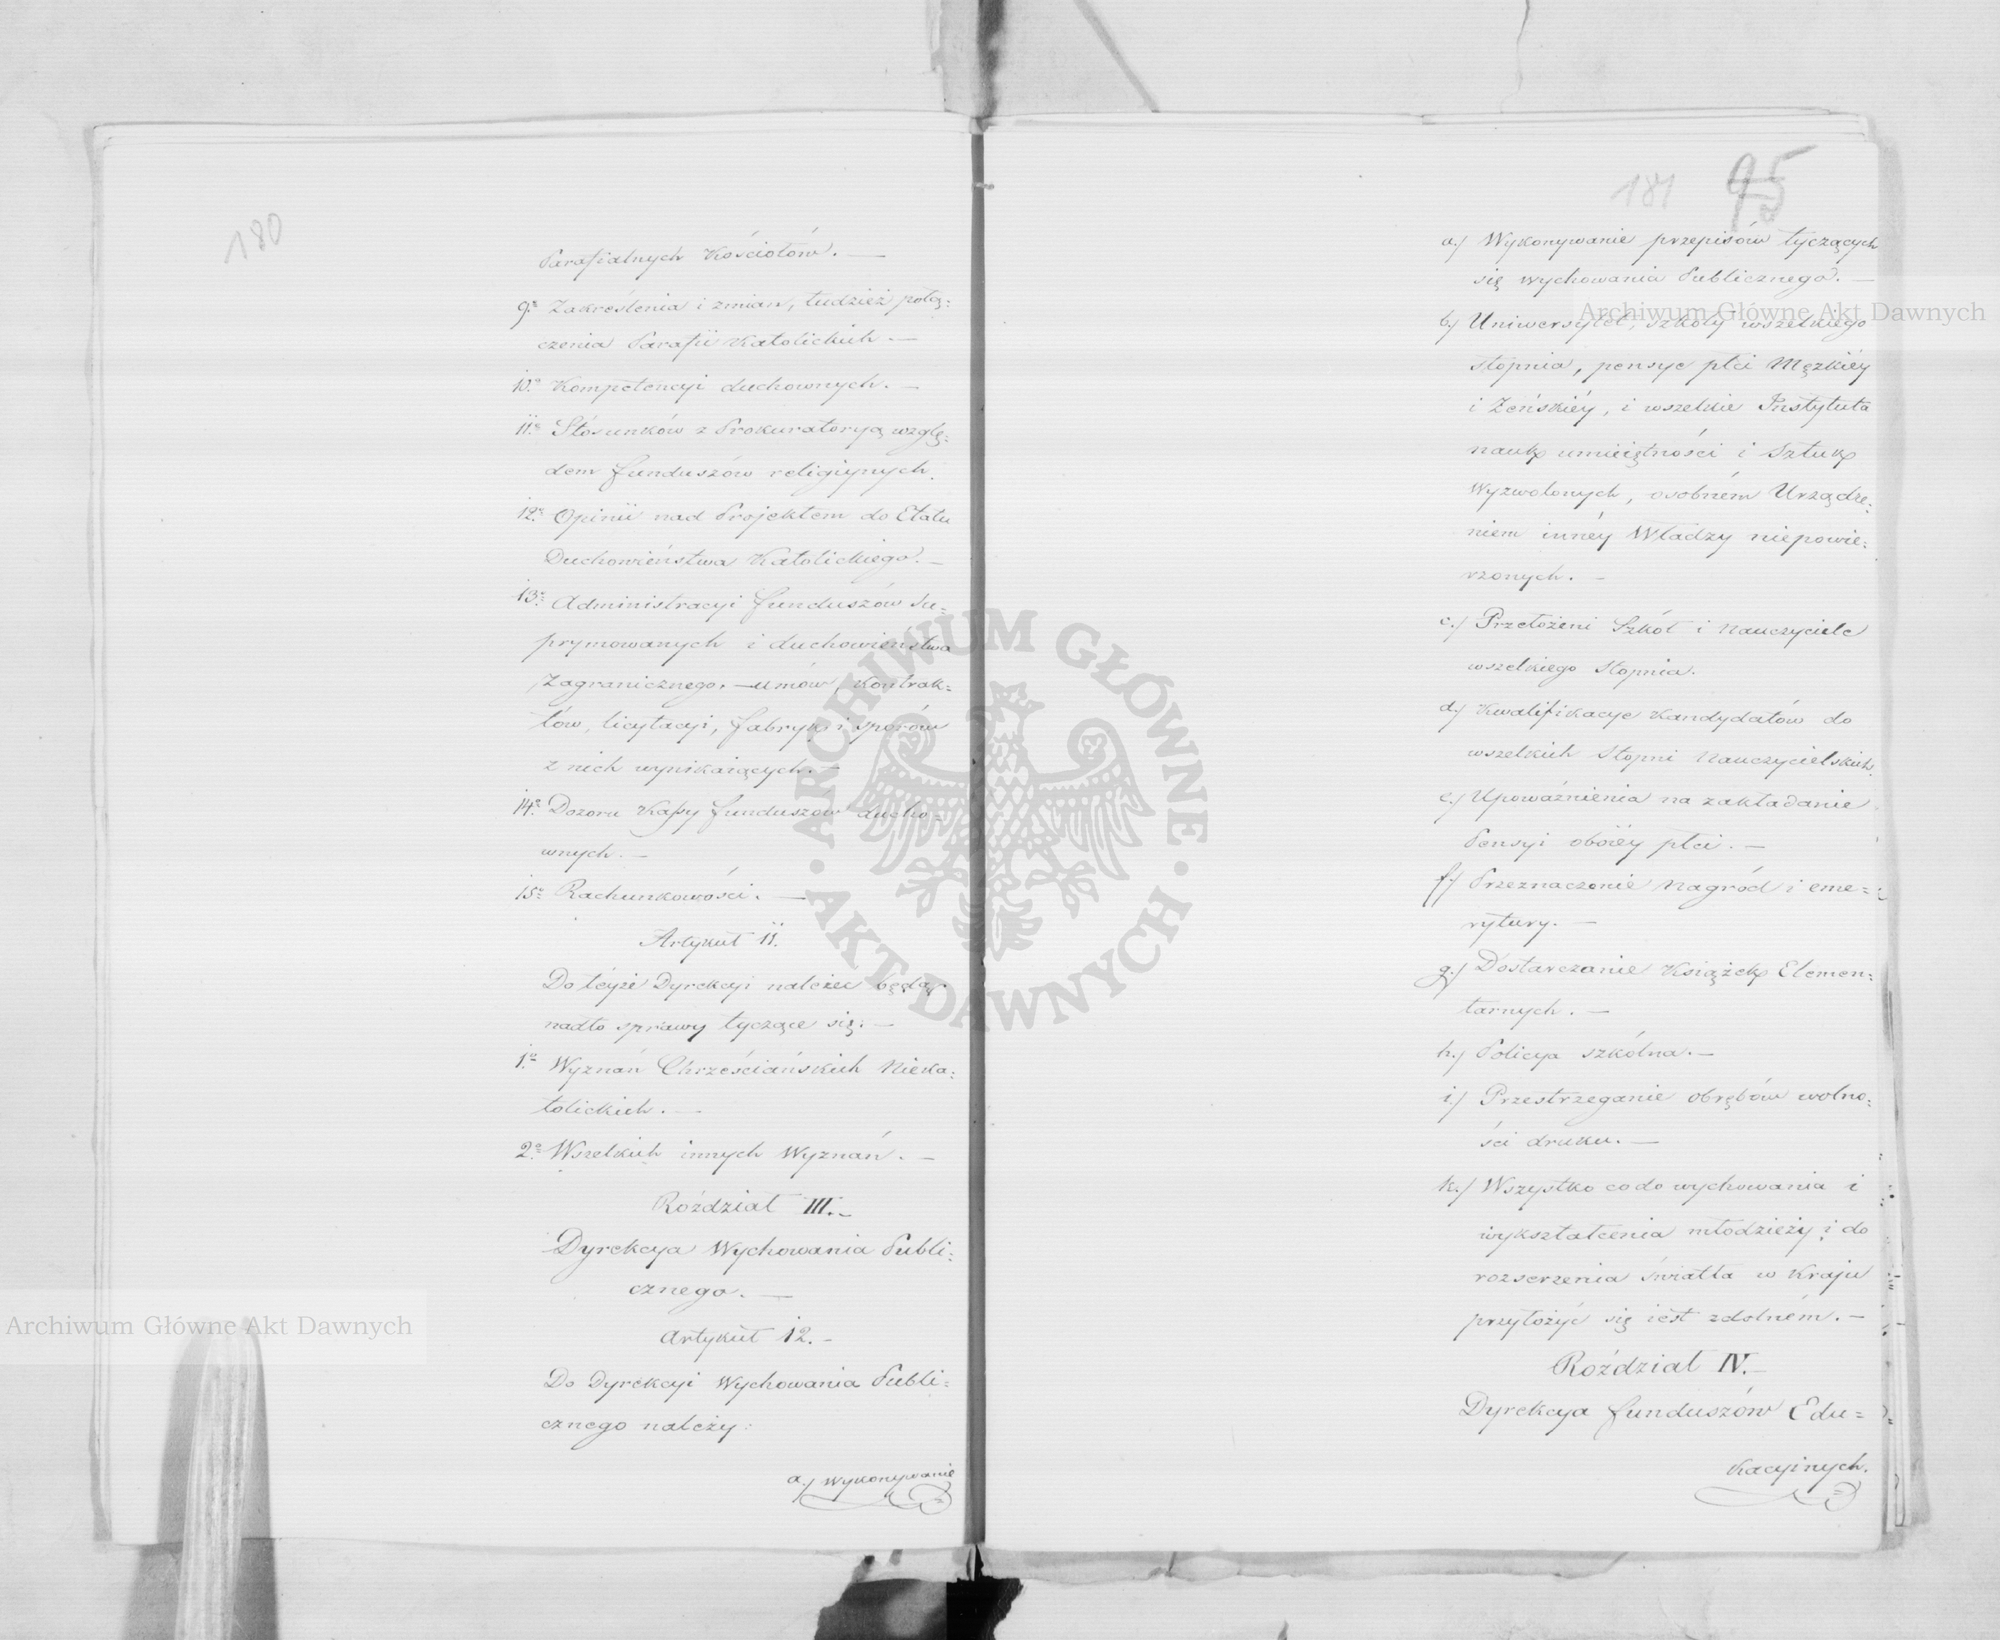 180
Parafialnych Kościołów. —
9.° Zakreślenia i zmian, tudzież połą:
czenia Parafii Katolickich. —
10.° Kompetencyi duchownych. —
11.° Stósunków z Prokuratoryą wzglę:
dem funduszów religiynych.
12.° Opinii nad Projektem do Etatu
Duchowieństwa Katolickiego. —
13.° Administracyi funduszów Su=
prymowanych i duchowieństwa
Zagranicznego, — umów, Kontrak=
tów, licytacyi, fabryk i sporów
z nich wynikaiących. —
14.° Dozoru Kassy funduszów ducho=
wnych. —
15.° Rachunkowości. —
Artykuł 11.
Do téyże Dyrekcyi należeć będą
nadto sprawy tyczące się: —
1.° Wyznań Chrześciańskich Nieka:
tolickich. —
2.° Wszelkich innych Wyznań. —
Roździał III. —
Dyrekcya Wychowania Publi:
cznego. —
Artykuł 12. —
Do Dyrekcyi Wychowania Publi:
cznego należy:
a./ Wykonywanie
181 95
a./ Wykonywanie przepisów tyczących
się wychowania Publicznego. —
b./ Uniwersytet, szkoły wszelkiego
stopnia, pensye płci Męzkiéy
i Żeńskiéy, i wszelkie Instytuta
nauk umieiętności i Sztuk
Wyzwolonych, osobném Urządze:
niem innéy Władzy niepowie:
rzonych. —
c./ Przełożeni Szkół i Nauczyciele
wszelkiego Stopnia.
d./ Kwalifikacye Kandydatów do
wszelkich Stopni Nauczycielskich.
e./ Upoważnienia na zakładanie
Pensyi obóiéy płci. —
f./ Przeznaczenie Nagród i eme=
rytury. —
g./ Dostarczanie Książek Elemen:
tarnych. —
h./ Policya szkólna. —
i./ Przestrzeganie obrębów wolno:
ści druku. —
k./ Wszystko co do wychowania i
wykształcenia młodzieży i do
rozserzenia światła w Kraju
przyłożyć się iest zdolném. —
Roździał IV. —
Dyrekcya funduszów Edu=
kacyinych.
Archiwum Główne Akt Dawnych
Archiwum Główne Akt Dawnych
ARCHIWUM GŁÓWNE · AKT DAWNYCH ·